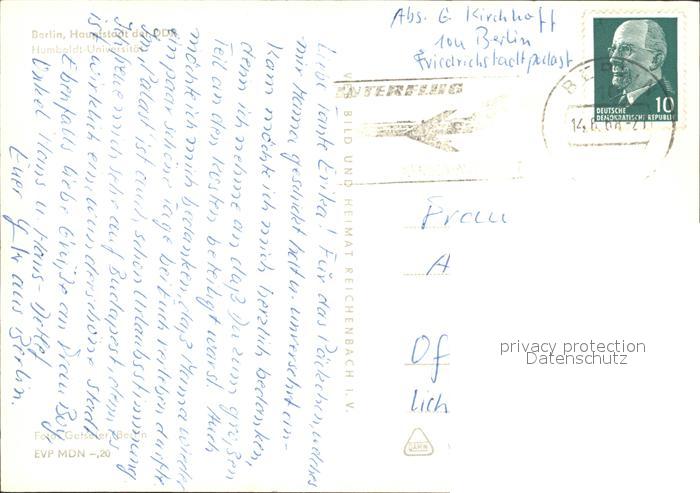 Berlin, Hauptstadt der DDR
Humboldt-Universität
Abs. G. Kirchhoff
104 Berlin
Friedrichstadtpalast
INTERFLUG
BER
14.8.
DEUTSCHE
DEMOKRATISCHE REPUBLIK
10
Liebe Tante Erika! Für das Päckchen, welches
mir Mama geschickt hat u. unversehrt an-
kam möchte ich mich herzlich bedanken,
denn ich nehme an daß Du zum großen
Teil an den Kosten beteiligt warst. Auch
möchte ich mich bedanken, daß Mama wieder
ein paar schöne Tage bei Euch verleben durfte.
Im Palast ist auch schon Urlaubsstimmung.
Ich freue mich sehr auf Budapest, denn es
ist wirklich eine wunderschöne Stadt.
Ebenfalls liebe Grüße an Frau
Onkel Hans u. Hans-Detlef
Euer aus Berlin.
BILD UND HEIMAT REICHENBACH I. V.
Frau
A
Of
lich
privacy protection
Datenschutz
Foto: Berlin
EVP MDN -,20